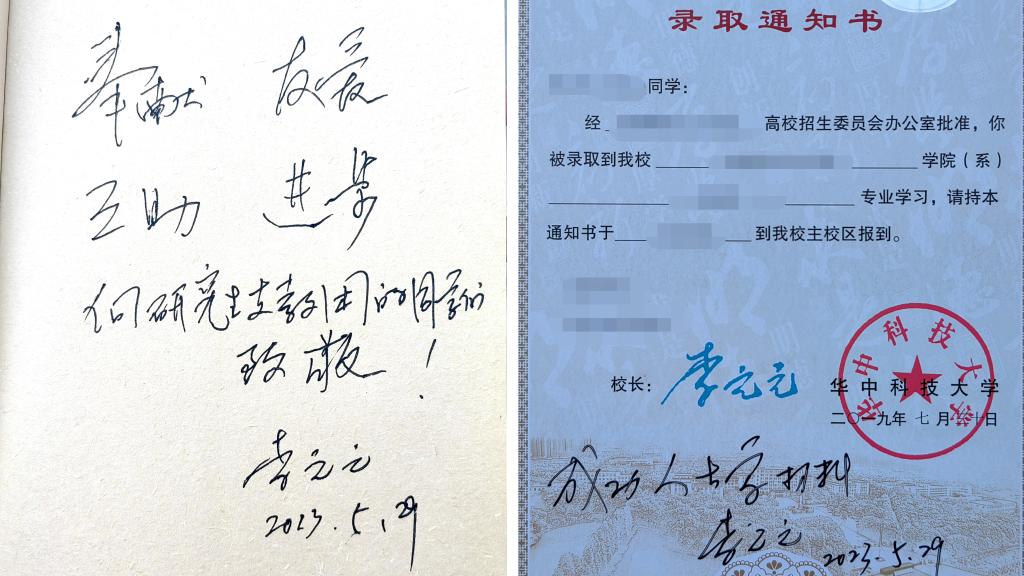 奉献 友爱
互助 进步
向研究生支教团的同学们
致敬！
李元元
2023.5.29
录取通知书
同学：
经 高校招生委员会办公室批准，你
被录取到我校 学院（系）
专业学习，请持本
通知书于 到我校主校区报到。
校长：李元元 华中科技大学
二〇一九年七月 日
华中科技大学
成功人士学材料
李元元 2023.5.29